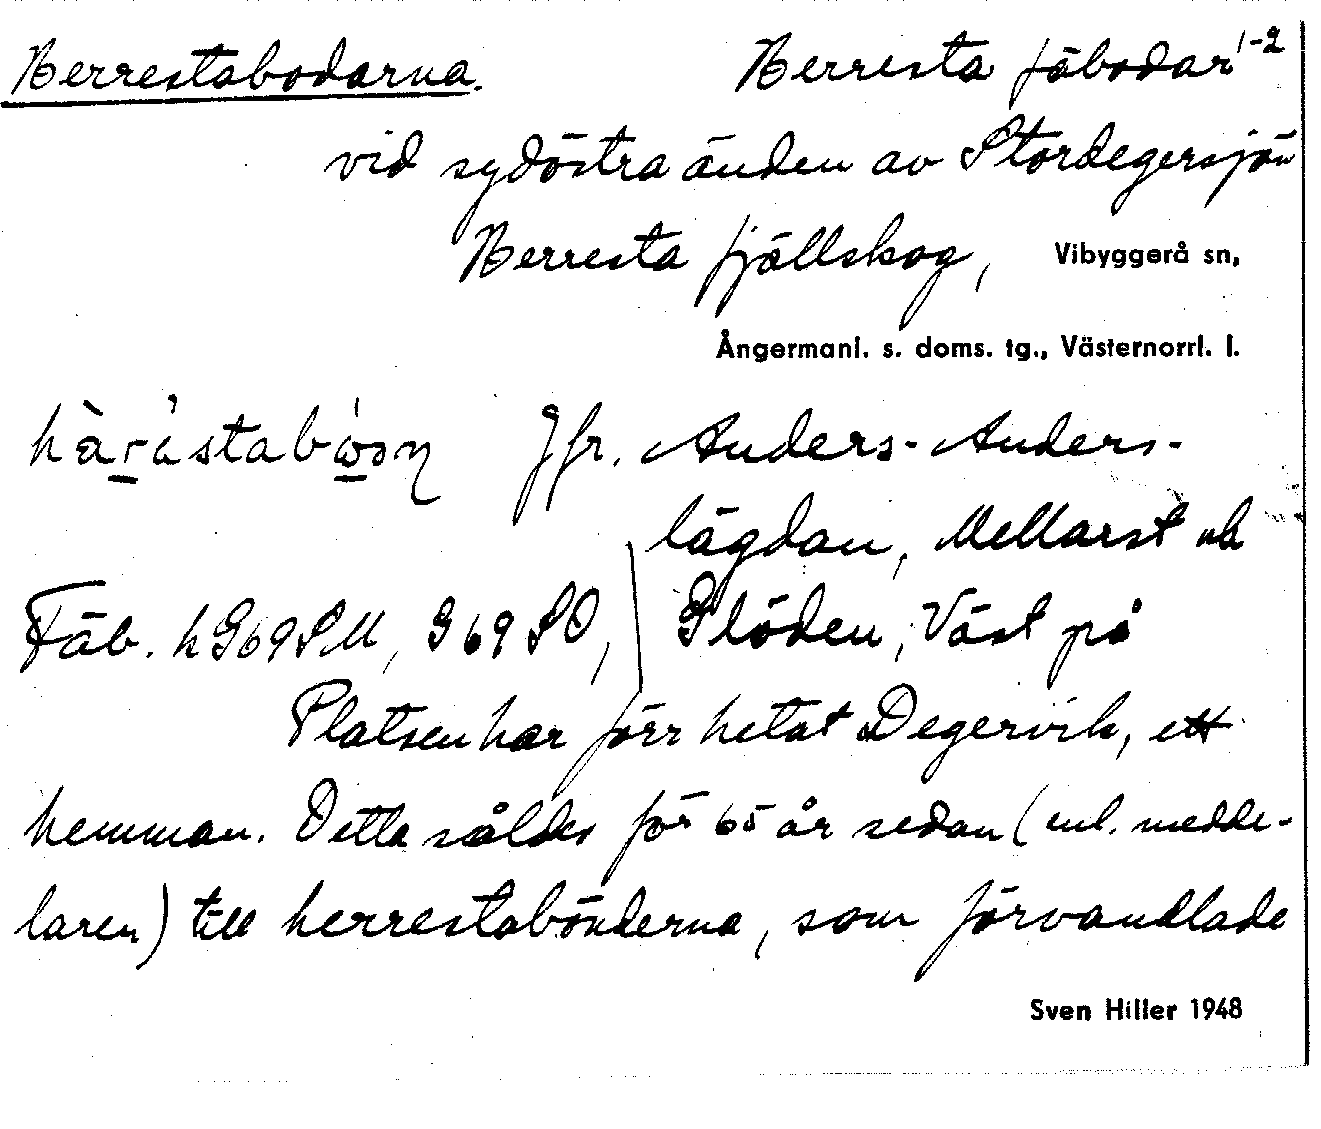 Herrestabodarna. Herresta fäbodar 1-2
vid sydöstra änden av Stordegersjön
Herresta fjällskog, Vibyggerå sn,
Ångermanl. s. doms. tg., Västernorrl. l.
Jfr. Anders-Anders-
lägdan, Mellarst och
Fäb. h G69SU, G69SO, Glöden, Väst på
Platsen har förr hetat Degervik, ett
hemman. Detta såldes för 65 år sedan (enl. medde-
laren) till herrestabönderna, som förvandlade
Sven Hiller 1948